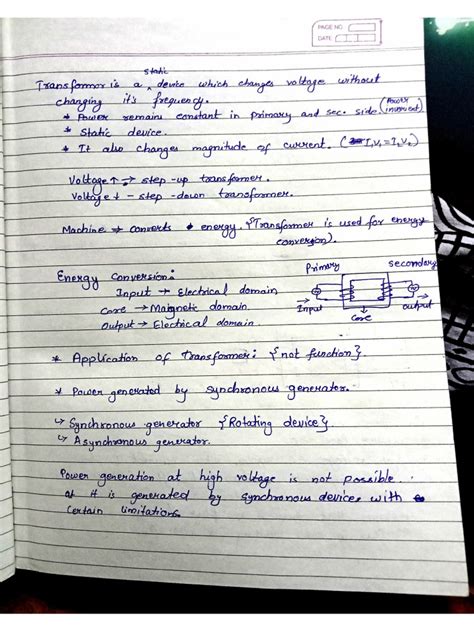 PAGE NO.
DATE
static
Transformer is a ^ device which changes voltage without
changing it's frequency.
* Power remains constant in primary and sec. side. (Power invarient)
* Static device.
* It also changes magnitude of current. (I₁V₁ = I₂V₂)
Voltage ↑ → step-up transformer.
Voltage ↓ - step-down transformer.
Machine → converts energy. {Transformer is used for energy
conversion}.
Energy Conversion:
Input → Electrical domain
Core → Magnetic domain.
Output → Electrical domain.
Primary
secondary
Input
Core
output
* Application of transformer: {not function}.
* Power generated by synchronous generator.
↳ Synchronous generator {Rotating device}
↳ Asynchronous generator.
Power generation at high voltage is not possible.
as it is generated by synchronous device, with
certain limitations.